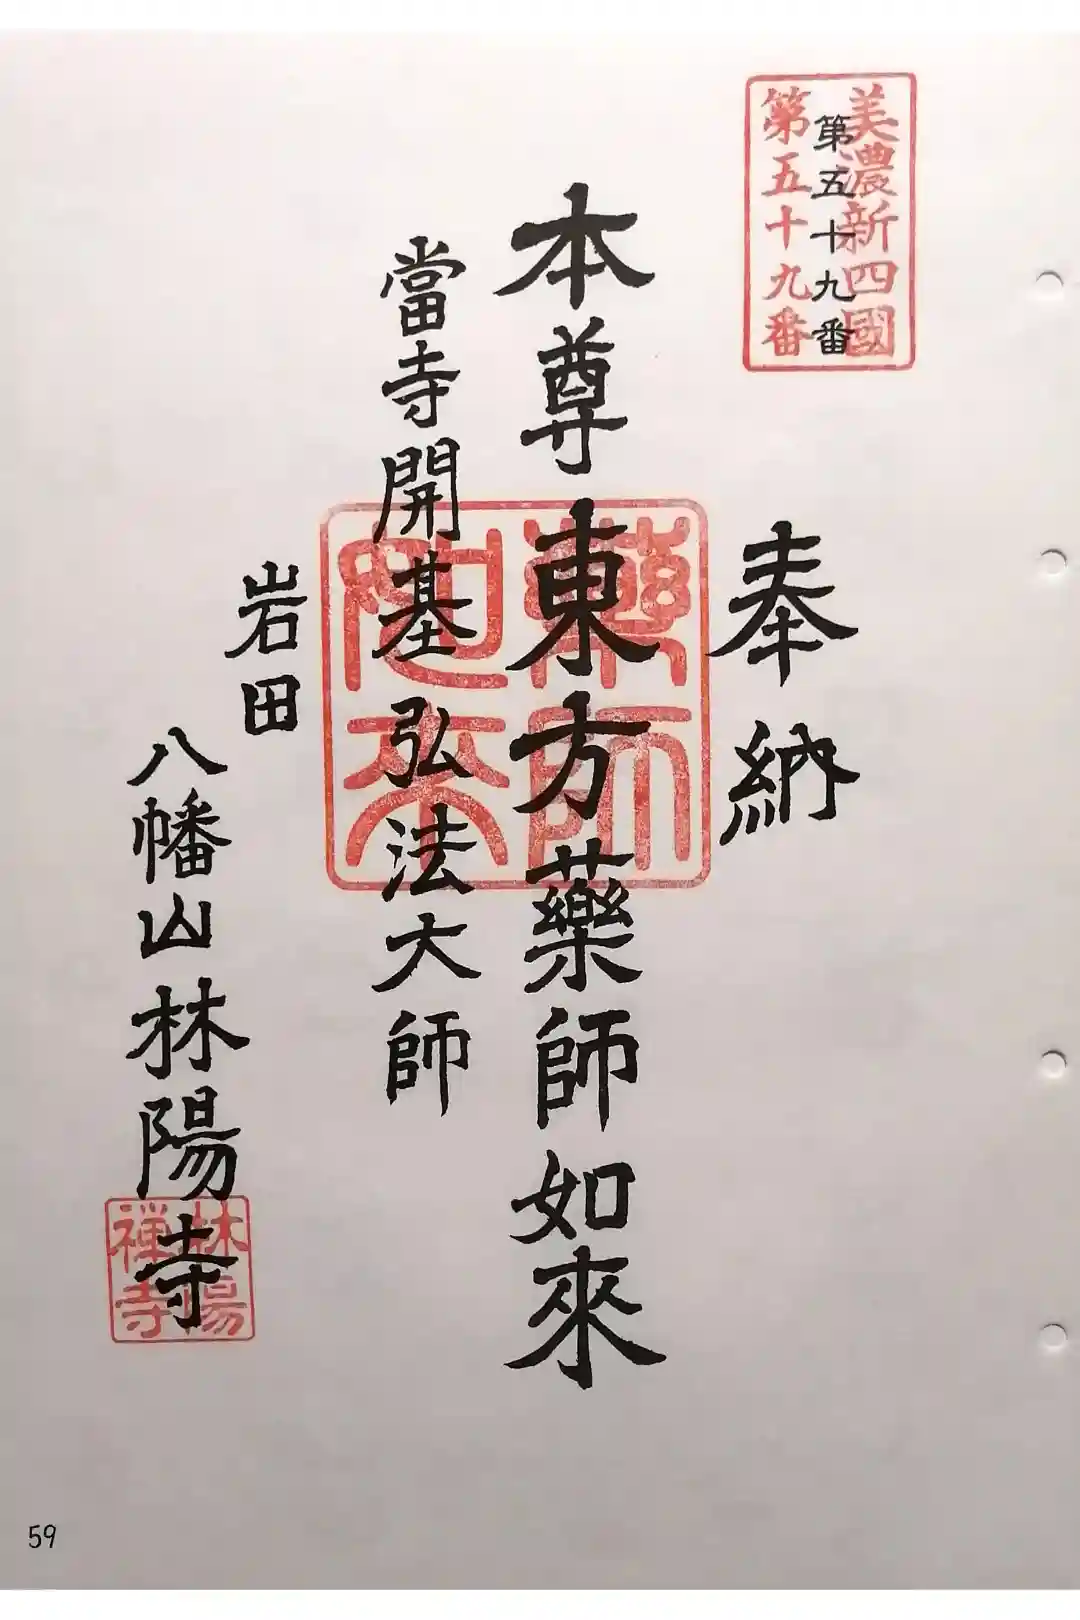 美濃新四國
第五十九番
第五十九番
奉納
本尊東方薬師如來
當寺開基弘法大師
岩田
八幡山林陽寺
藥師
如来
林陽
禅寺
59